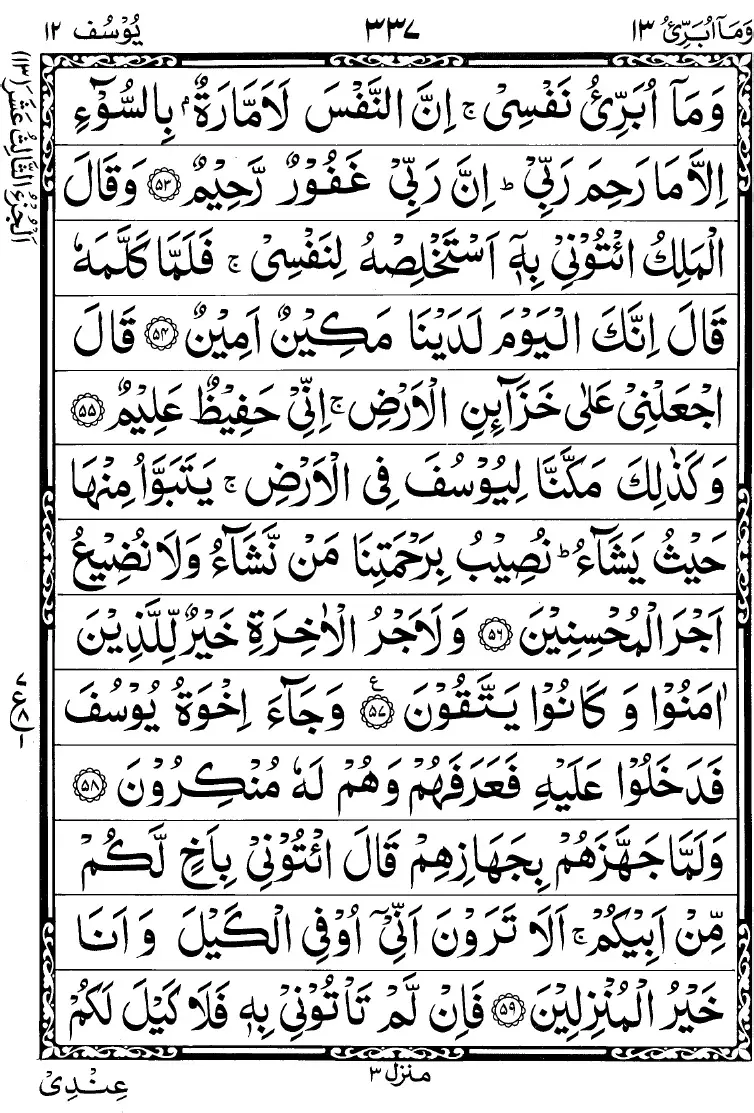 وَمَآ اُبَرِّئُ ١٣
٣٣٧
يُوْسُف ١٢
اَلْجُزْءُ الثَّالِثُ عَشَرَ (١٣)
وَمَآ اُبَرِّئُ نَفْسِیْ ۚ اِنَّ النَّفْسَ لَاَمَّارَةٌۢ بِالسُّوْٓءِ
اِلَّا مَا رَحِمَ رَبِّیْ ؕ اِنَّ رَبِّیْ غَفُوْرٌ رَّحِیْمٌ ۝۵۳ وَقَالَ
الْمَلِكُ ائْتُوْنِیْ بِهٖۤ اَسْتَخْلِصْهُ لِنَفْسِیْ ۚ فَلَمَّا كَلَّمَهٗ
قَالَ اِنَّكَ الْیَوْمَ لَدَیْنَا مَكِیْنٌ اَمِیْنٌ ۝۵۴ قَالَ
اجْعَلْنِیْ عَلٰی خَزَآئِنِ الْاَرْضِ ۚ اِنِّیْ حَفِیْظٌ عَلِیْمٌ ۝۵۵
وَكَذٰلِكَ مَكَّنَّا لِیُوْسُفَ فِی الْاَرْضِ ۚ یَتَبَوَّاُ مِنْهَا
حَیْثُ یَشَآءُ ؕ نُصِیْبُ بِرَحْمَتِنَا مَنْ نَّشَآءُ وَلَا نُضِیْعُ
اَجْرَ الْمُحْسِنِیْنَ ۝۵۶ وَلَاَجْرُ الْاٰخِرَةِ خَیْرٌ لِّلَّذِیْنَ
اٰمَنُوْا وَكَانُوْا یَتَّقُوْنَ ۝۵۷ ع وَجَآءَ اِخْوَةُ یُوْسُفَ
فَدَخَلُوْا عَلَیْهِ فَعَرَفَهُمْ وَهُمْ لَهٗ مُنْكِرُوْنَ ۝۵۸
وَلَمَّا جَهَّزَهُمْ بِجَهَازِهِمْ قَالَ ائْتُوْنِیْ بِاَخٍ لَّكُمْ
مِّنْ اَبِیْكُمْ ۚ اَلَا تَرَوْنَ اَنِّیْۤ اُوْفِی الْكَیْلَ وَاَنَا
خَیْرُ الْمُنْزِلِیْنَ ۝۵۹ فَاِنْ لَّمْ تَاْتُوْنِیْ بِهٖ فَلَا كَیْلَ لَكُمْ
منزل ٣
عِنْدِیْ